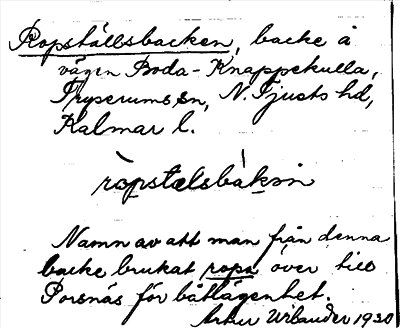 Ropställsbacken, backe å
vägen Boda-Knappekulla,
Tryserums sn, N. Tjusts hd,
Kalmar l.
ròpstælsbàkən
Namn av att man från denna
backe brukat ropa över till
Porsnäs för båtlägenhet.
Artur Urbander 1930